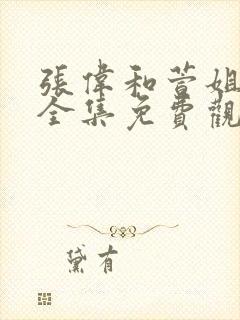 張偉和萱姐
全集免費觀
黛有